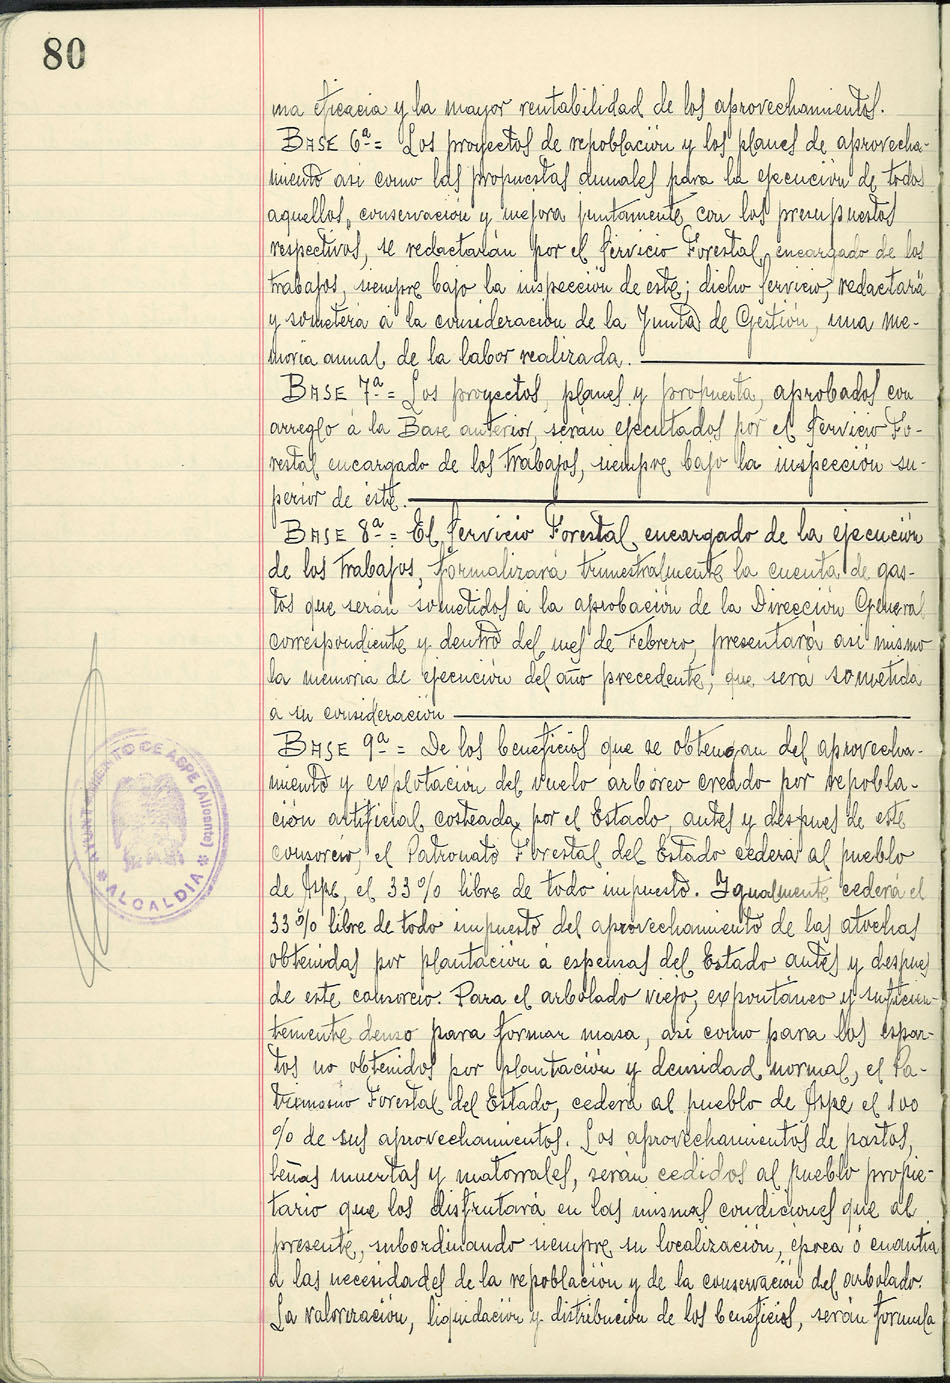 80
ma eficacia y la mayor rentabilidad de los aprovechamientos.
BASE 6ª = Los proyectos de repoblación y los planes de aprovecha-
miento asi como las propuestas anuales para la ejecución de todos
aquellos, conservación y mejora juntamente con los presupuestos
respectivos, se redactarán por el Servicio Forestal encargado de los
trabajos, siempre bajo la inspección de este; dicho Servicio, redactará
y someterá á la consideración de la Junta de Gestión, una me-
moria anual de la labor realizada.
BASE 7ª = Los proyectos, planes y propuesta, aprobados con
arreglo á la Base anterior, serán ejecutados por el Servicio Fo-
restal encargado de los trabajos, siempre bajo la inspección su-
perior de este.
BASE 8ª = El Servicio Forestal encargado de la ejecución
de los trabajos, formalizará trimestralmente la cuenta de gas-
tos que serán sometidos á la aprobación de la Dirección General
correspondiente y dentro del mes de Febrero, presentará asi mismo
la memoria de ejecución del año precedente, que será sometida
a su consideración
BASE 9ª = De los beneficios que se obtengan del aprovecha-
miento y explotación del vuelo arbóreo creado por repobla-
ción artificial costeada por el Estado, antes y despues de este
consorcio, el Patronato Forestal del Estado cederá al pueblo
de Aspe, el 33% libre de todo impuesto. Igualmente cederá el
33% libre de todo impuesto del aprovechamiento de las atochas
obtenidas por plantación á espensas del Estado antes y despues
de este consorcio. Para el arbolado viejo, expontáneo y suficien-
temente denso para formar masa, asi como para los espar-
tos no obtenidos por plantación y densidad normal, el Pa-
trimonio Forestal del Estado, cederá al pueblo de Aspe el 100
% de sus aprovechamientos. Los aprovechamientos de pastos,
leñas muertas y matorrales, serán cedidos al pueblo propie-
tario que los disfrutará en las mismas condiciones que al
presente, subordinando siempre su localización, época ó cuantia
á las necesidades de la repoblación y de la conservación del arbolado.
La valorización, liquidación y distribución de los beneficios, serán formula
AYUNTAMIENTO DE ASPE (Alicante)
* ALCALDIA *